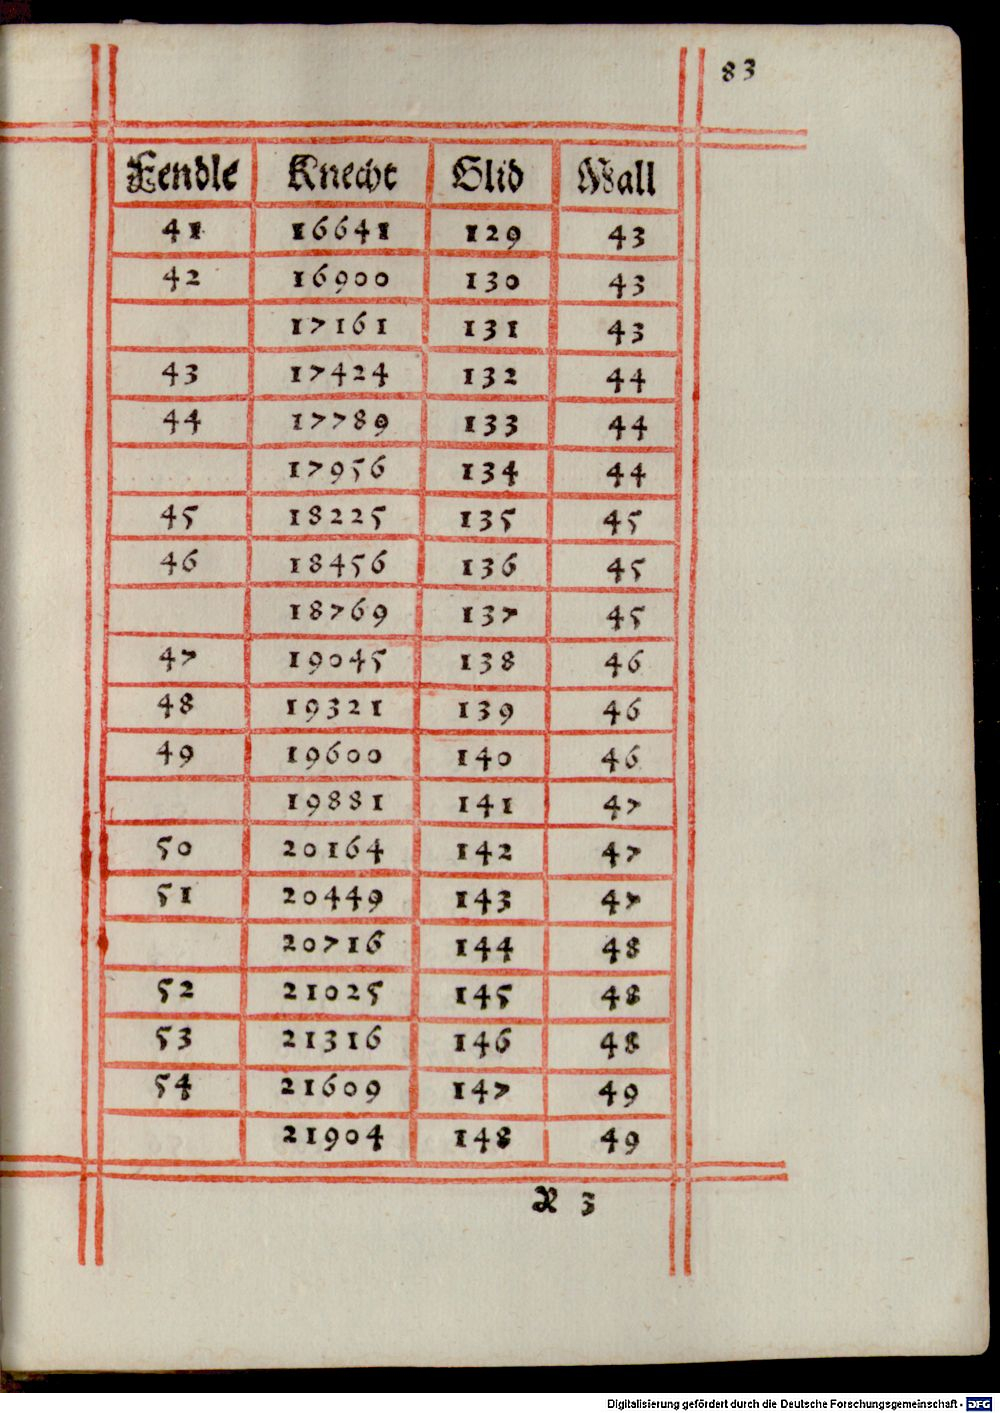 83
Fendle Knecht Glid Wall
41 16641 129 43
42 16900 130 43
17161 131 43
43 17424 132 44
44 17789 133 44
17956 134 44
45 18225 135 45
46 18456 136 45
18769 137 45
47 19045 138 46
48 19321 139 46
49 19600 140 46
19881 141 47
50 20164 142 47
51 20449 143 47
20716 144 48
52 21025 145 48
53 21316 146 48
54 21609 147 49
21904 148 49
X 3
Digitalisierung gefördert durch die Deutsche Forschungsgemeinschaft - DFG